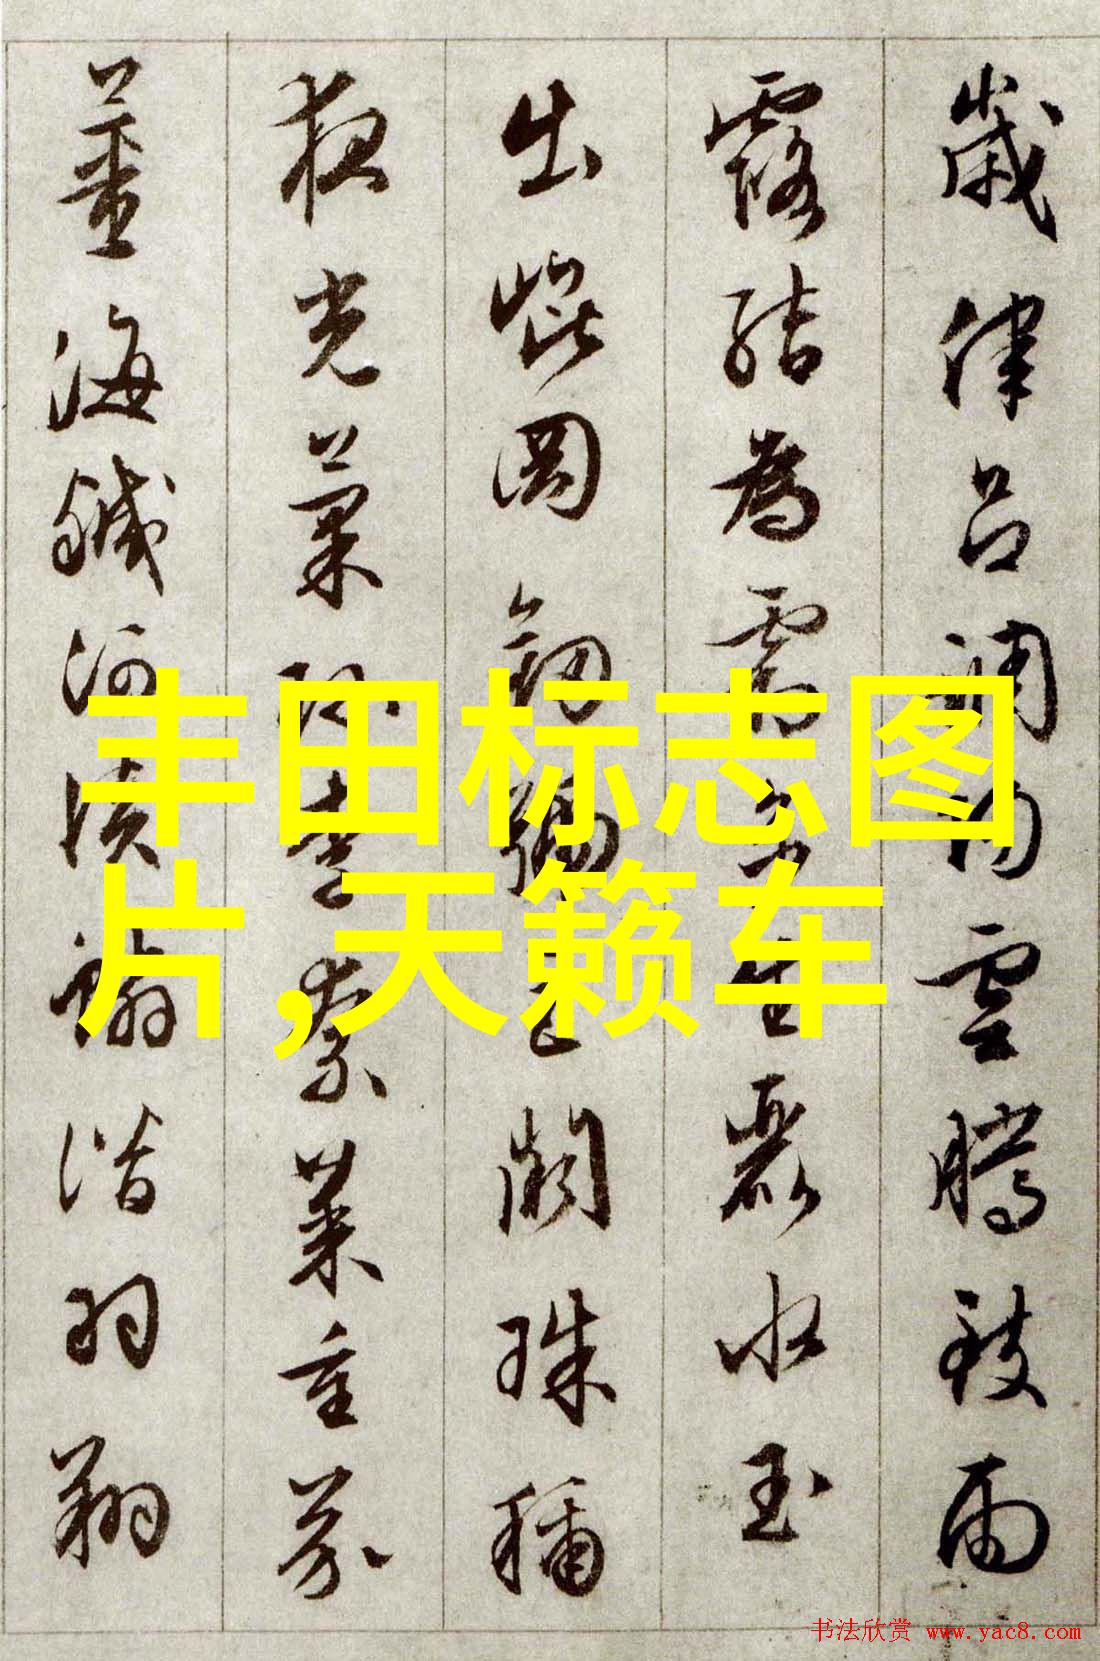 歲律呂調陽雲騰致雨
露結為霜金生麗水玉
出崐岡劒號巨闕珠稱
夜光菓珍李柰菜重芥
薑海鹹河淡鱗潛羽翔
丰田标志图
片,天籁车
书法欣赏 www.yac8.com